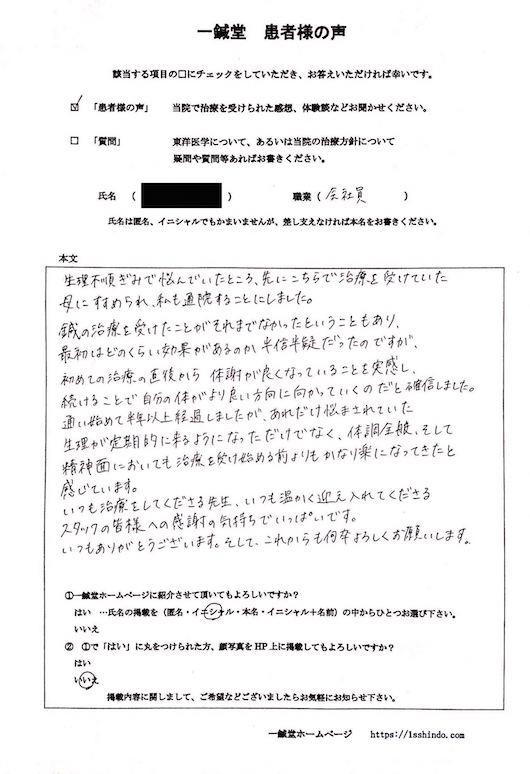 一鍼堂 患者様の声
該当する項目の□にチェックをしていただき、お答えいただければ幸いです。
☑ 「患者様の声」 当院で治療を受けられた感想、体験談などお聞かせください。
□ 「質問」 東洋医学について、あるいは当院の治療方針について
疑問や質問等あればお書きください。
氏名 ( ) 職業 ( 会社員 )
氏名は匿名、イニシャルでもかまいませんが、差し支えなければ本名をお書きください。
本文
生理不順ぎみで悩んでいたところ、先にこちらで治療を受けていた
母にすすめられ、私も通院することにしました。
鍼の治療を受けたことがそれまでなかったということもあり、
最初はどのくらい効果があるのか半信半疑だったのですが、
初めての治療の直後から 体調が良くなっていることを実感し、
続けることで自分の体がより良い方向に向かっていくのだと確信しました。
通い始めて半年以上経過しましたが、あれだけ悩まされていた
生理が定期的に来るようになっただけでなく、体調全般、そして
精神面においても治療を受け始める前よりもかなり楽になってきたと
感じています。
いつも治療をしてくださる先生、いつも温かく迎え入れてくださる
スタッフの皆様への感謝の気持ちでいっぱいです。
いつもありがとうございます。そして、これからも何卒よろしくお願いします。
①一鍼堂ホームページに紹介させて頂いてもよろしいですか?
はい …氏名の掲載を(匿名・イニシャル・本名・イニシャル+名前)の中からひとつお選び下さい。
いいえ
② ①で「はい」に丸をつけられた方、顔写真をHP上に掲載してもよろしいですか?
はい
いいえ
掲載内容に関しまして、ご希望などございましたらお気軽にお知らせ下さい。
一鍼堂ホームページ https://1sshindo.com